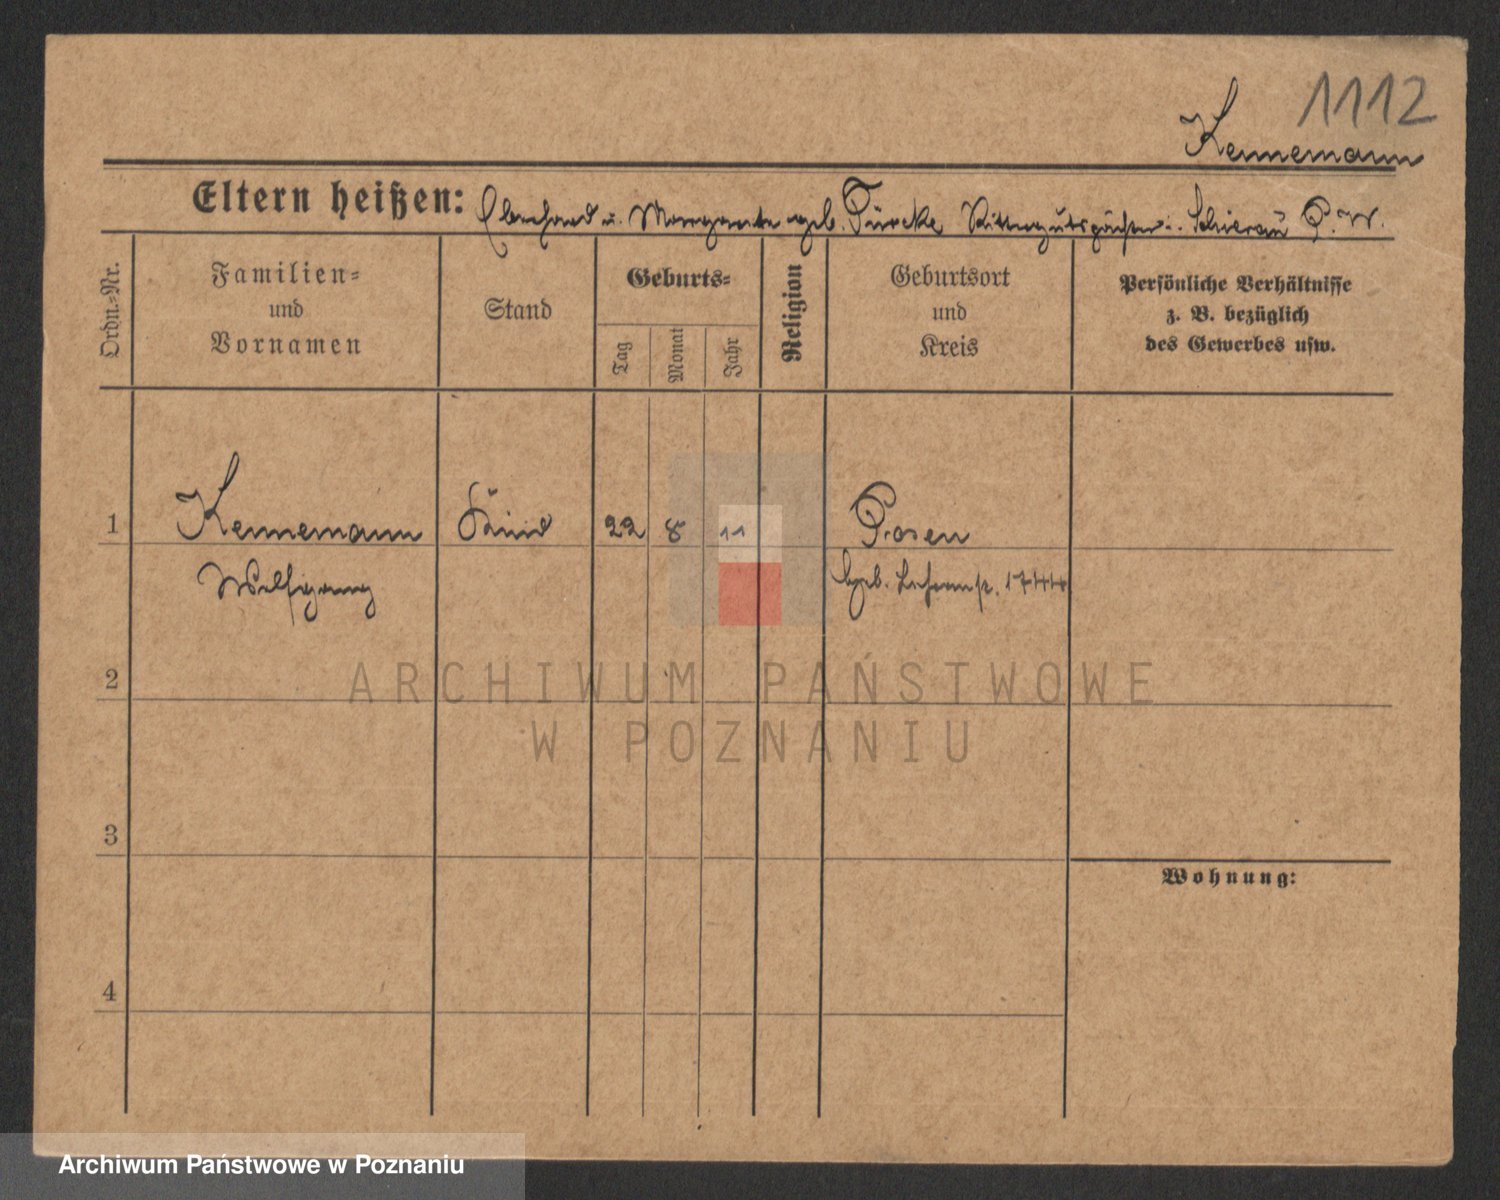 1112
Kennemann
Eltern heißen: Eberhard u. Margarete geb. Türcke Rittergutspächter Schierau P. W.
Ordn.-Nr.
Familien-
und
Vornamen
Stand
Geburts-
Tag
Monat
Jahr
Religion
Geburtsort
und
Kreis
Persönliche Verhältnisse
z. B. bezüglich
des Gewerbes usw.
1 Kennemann Kind 22 8 11 Posen
Wolfgang geb. 1744
2
ARCHIWUM PAŃSTWOWE
W POZNANIU
3
Wohnung:
4
Archiwum Państwowe w Poznaniu